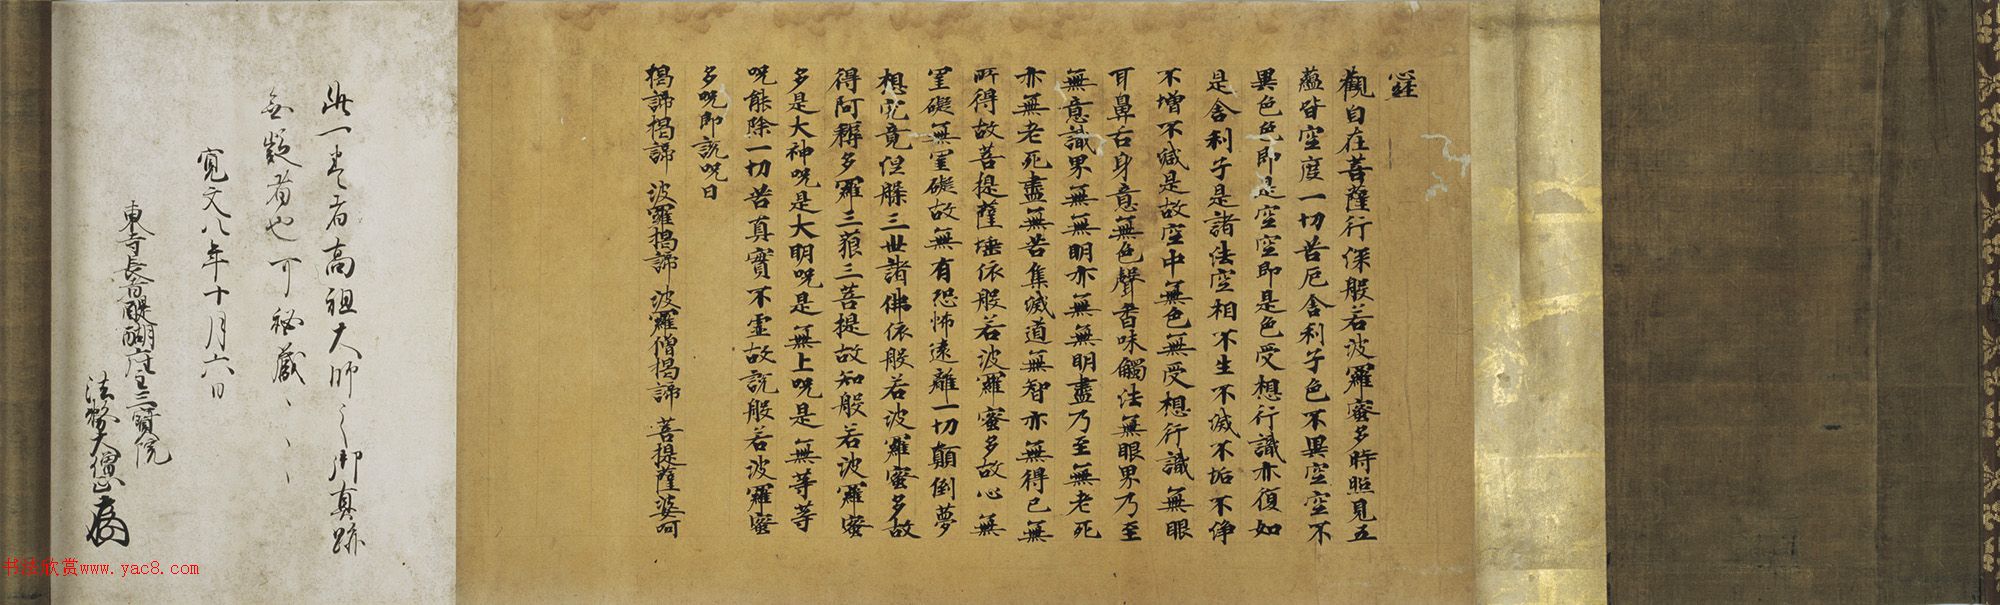 觀自在菩薩行深般若波羅蜜多時照見五
蘊皆空度一切苦厄舍利子色不異空空不
異色色即是空空即是色受想行識亦復如
是舍利子是諸法空相不生不滅不垢不淨
不增不減是故空中無色無受想行識無眼
耳鼻舌身意無色聲香味觸法無眼界乃至
無意識界無無明亦無無明盡乃至無老死
亦無老死盡無苦集滅道無智亦無得已無
所得故菩提薩埵依般若波羅蜜多故心無
罣礙無罣礙故無有恐怖遠離一切顛倒夢
想究竟涅槃三世諸佛依般若波羅蜜多故
得阿耨多羅三藐三菩提故知般若波羅蜜
多是大神呪是大明呪是無上呪是無等等
呪能除一切苦真實不虛故說般若波羅蜜
多呪即說呪曰
揭諦揭諦 波羅揭諦 波羅僧揭諦 菩提薩婆呵
此一巻者高祖大師之御真跡
無疑者也可秘蔵〻〻
寛文八年十月六日
東寺長者醍醐座主三寳院
法務大僧正
书法欣赏www.yac8.com